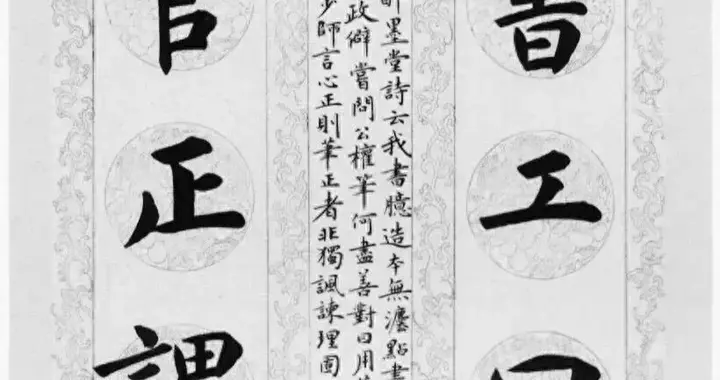 書工
墨堂詩云我書臆造本無灋點畫
政僻嘗問公權筆何盡善對曰用
少師言心正則筆正者非獨諷諫理固
正謂